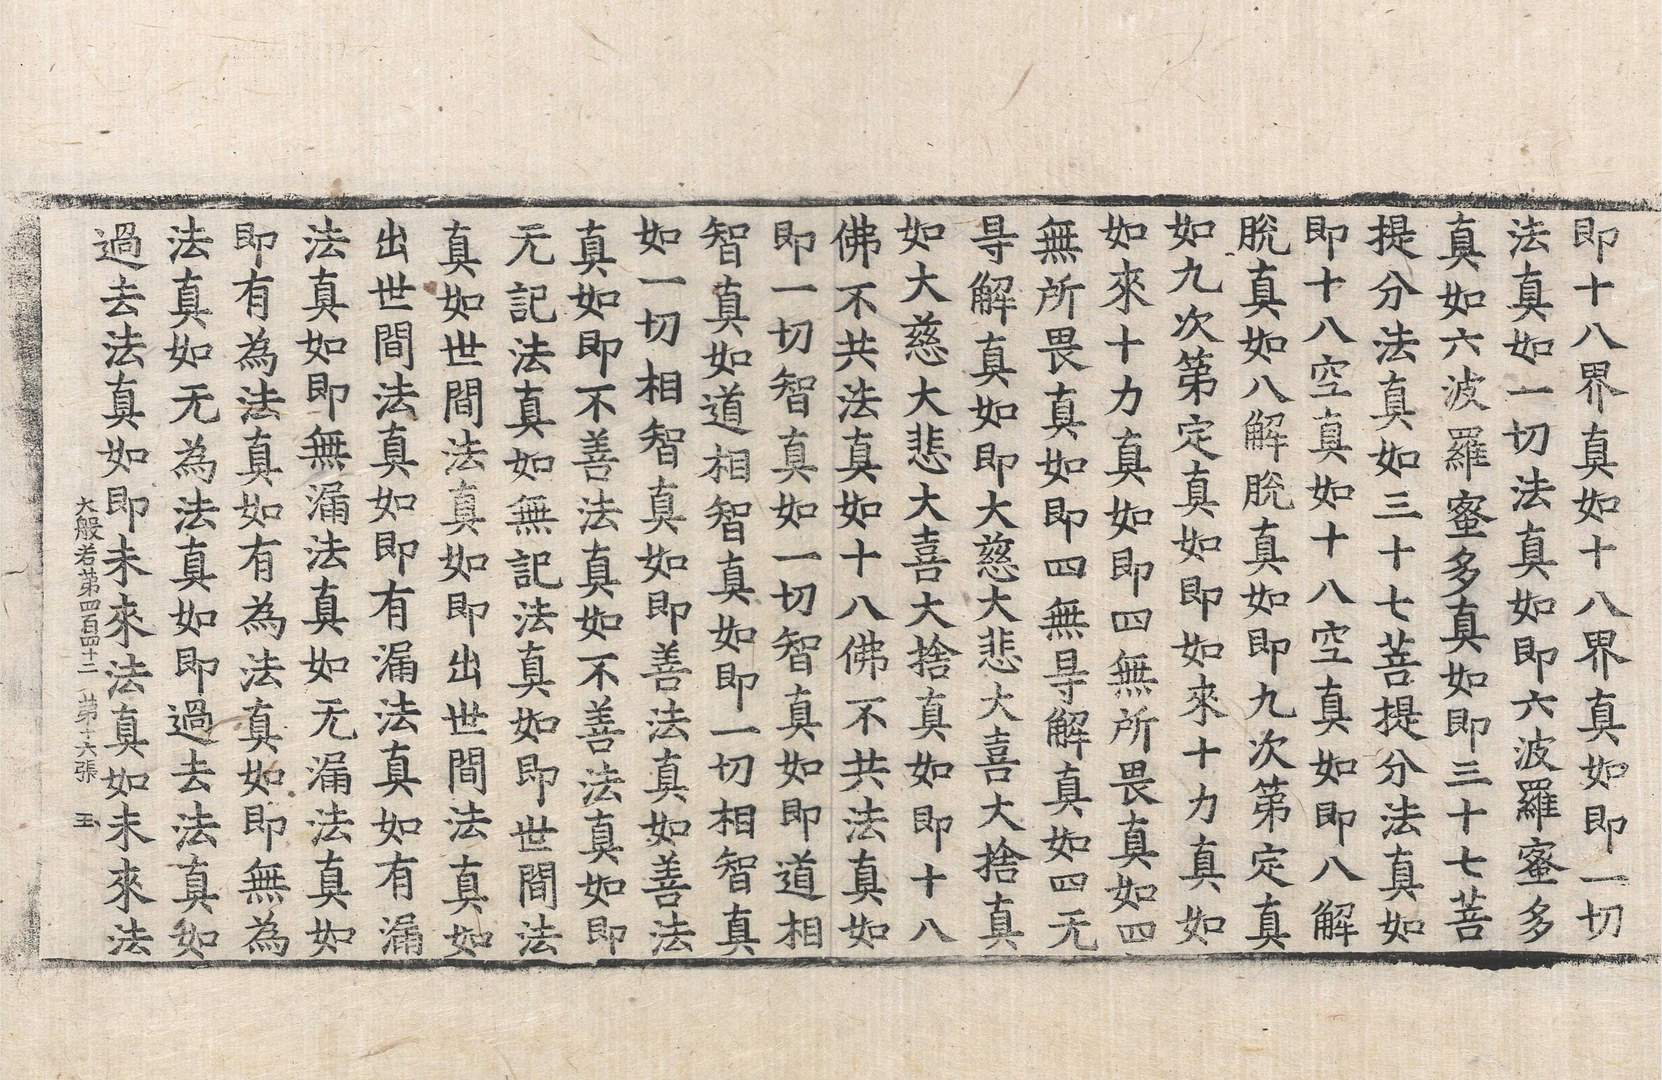 即十八界真如十八界真如即一切
法真如一切法真如即六波羅蜜多
真如六波羅蜜多真如即三十七菩
提分法真如三十七菩提分法真如
即十八空真如十八空真如即八解
脫真如八解脫真如即九次第定真
如九次第定真如即如來十力真如
如來十力真如即四無所畏真如四
無所畏真如即四無㝵解真如四无
㝵解真如即大慈大悲大喜大捨真
如大慈大悲大喜大捨真如即十八
佛不共法真如十八佛不共法真如
即一切智真如一切智真如即道相
智真如道相智真如即一切相智真
如一切相智真如即善法真如善法
真如即不善法真如不善法真如即
无記法真如無記法真如即世間法
真如世間法真如即出世間法真如
出世間法真如即有漏法真如有漏
法真如即無漏法真如无漏法真如
即有為法真如有為法真如即無為
法真如无為法真如即過去法真如
過去法真如即未來法真如未來法
大般若第四百四十二 第十六張 玉